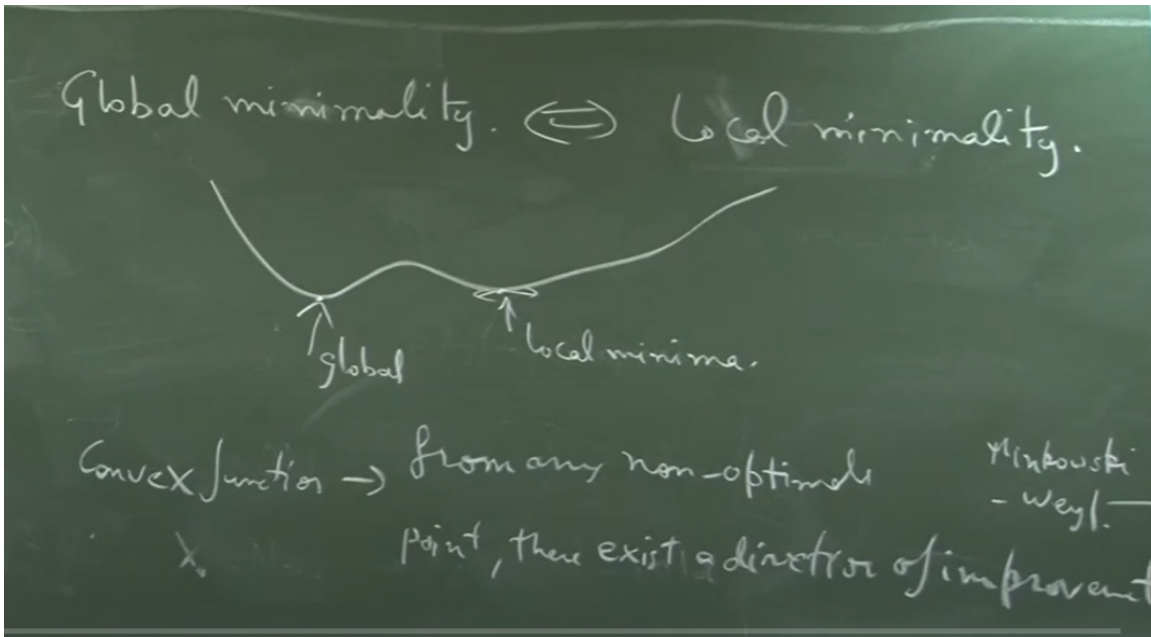 Global minimality. ⇔ Local minimality.
global
local minima.
Convex function → from any non-optimal
point, there exist a direction of improvement
Minkowski
- Weyl. —
x.